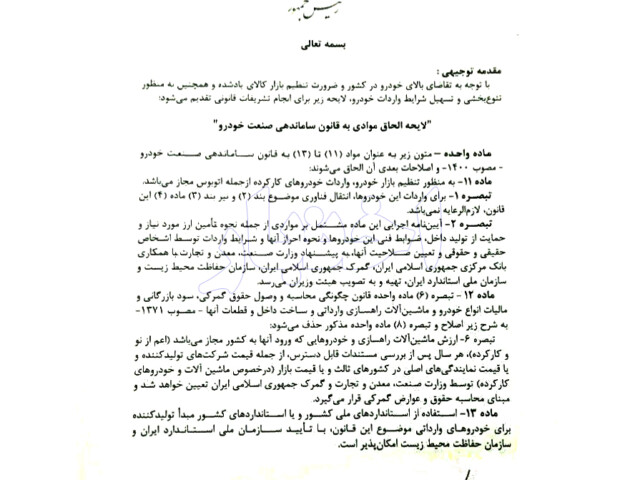 رئیس جمهور
بسمه تعالی
مقدمه توجیهی :
با توجه به تقاضای بالای خودرو در کشور و ضرورت تنظیم بازار کالای یادشده و همچنین به منظور
تنوع‌بخشی و تسهیل شرایط واردات خودرو، لایحه زیر برای انجام تشریفات قانونی تقدیم می‌شود:
"لایحه الحاق موادی به قانون ساماندهی صنعت خودرو"
ماده واحده – متون زیر به عنوان مواد (۱۱) تا (۱۳) به قانون ساماندهی صنعت خودرو
- مصوب ۱۴۰۰- و اصلاحات بعدی آن الحاق می‌شوند:
ماده ۱۱- به منظور تنظیم بازار خودرو، واردات خودروهای کارکرده ازجمله اتوبوس مجاز می‌باشد.
تبصره ۱- برای واردات این خودروها، انتقال فناوری موضوع بند (۲) و نیز بند (۳) ماده (۴) این
قانون، لازم‌الرعایه نمی‌باشد.
تبصره ۲- آیین‌نامه اجرایی این ماده مشتمل بر مواردی از جمله نحوه تأمین ارز مورد نیاز و
حمایت از تولید داخل، ضوابط فنی این خودروها و نحوه احراز آنها و شرایط واردات توسط اشخاص
حقیقی و حقوقی و تعیین صلاحیت آنها، به پیشنهاد وزارت صنعت، معدن و تجارت با همکاری
بانک مرکزی جمهوری اسلامی ایران، گمرک جمهوری اسلامی ایران، سازمان حفاظت محیط زیست و
سازمان ملی استاندارد ایران، تهیه و به تصویب هیئت وزیران می‌رسد.
ماده ۱۲ - تبصره (۶) ماده واحده قانون چگونگی محاسبه و وصول حقوق گمرکی، سود بازرگانی و
مالیات انواع خودرو و ماشین‌آلات راهسازی وارداتی و ساخت داخل و قطعات آنها - مصوب ۱۳۷۱-
به شرح زیر اصلاح و تبصره (۸) ماده واحده مذکور حذف می‌شود:
تبصره ۶- ارزش ماشین‌آلات راهسازی و خودروهایی که ورود آنها به کشور مجاز می‌باشد (اعم از نو
و کارکرده)، هر سال پس از بررسی مستندات قابل دسترس، از جمله قیمت شرکت‌های تولیدکننده و
یا قیمت نمایندگی‌های اصلی در کشورهای ثالث و یا قیمت بازار (درخصوص ماشین آلات و خودروهای
کارکرده) توسط وزارت صنعت، معدن و تجارت و گمرک جمهوری اسلامی ایران تعیین خواهد شد و
مبنای محاسبه حقوق و عوارض گمرکی قرار می‌گیرد.
ماده ۱۳- استفاده از استانداردهای ملی کشور و یا استانداردهای کشور مبدأ تولیدکننده
برای خودروهای وارداتی موضوع این قانون، با تأیید سازمان ملی استاندارد ایران و
سازمان حفاظت محیط زیست امکان‌پذیر است.